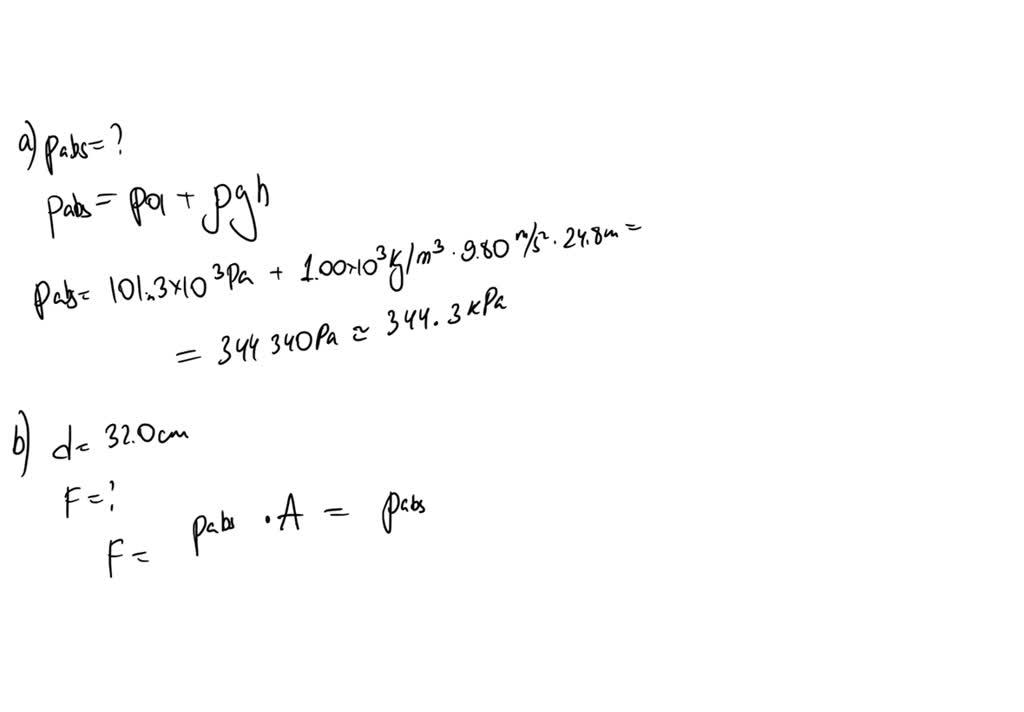 a) Pabs = ?
Pabs = Pa + ρgh
Pabs = 101.3×10³Pa + 1.00×10³kg/m³ · 9.80 m/s² · 24.8m =
= 344 340Pa ≈ 344.3kPa
b) d = 32.0cm
F = ?
F = Pabs · A = Pabs